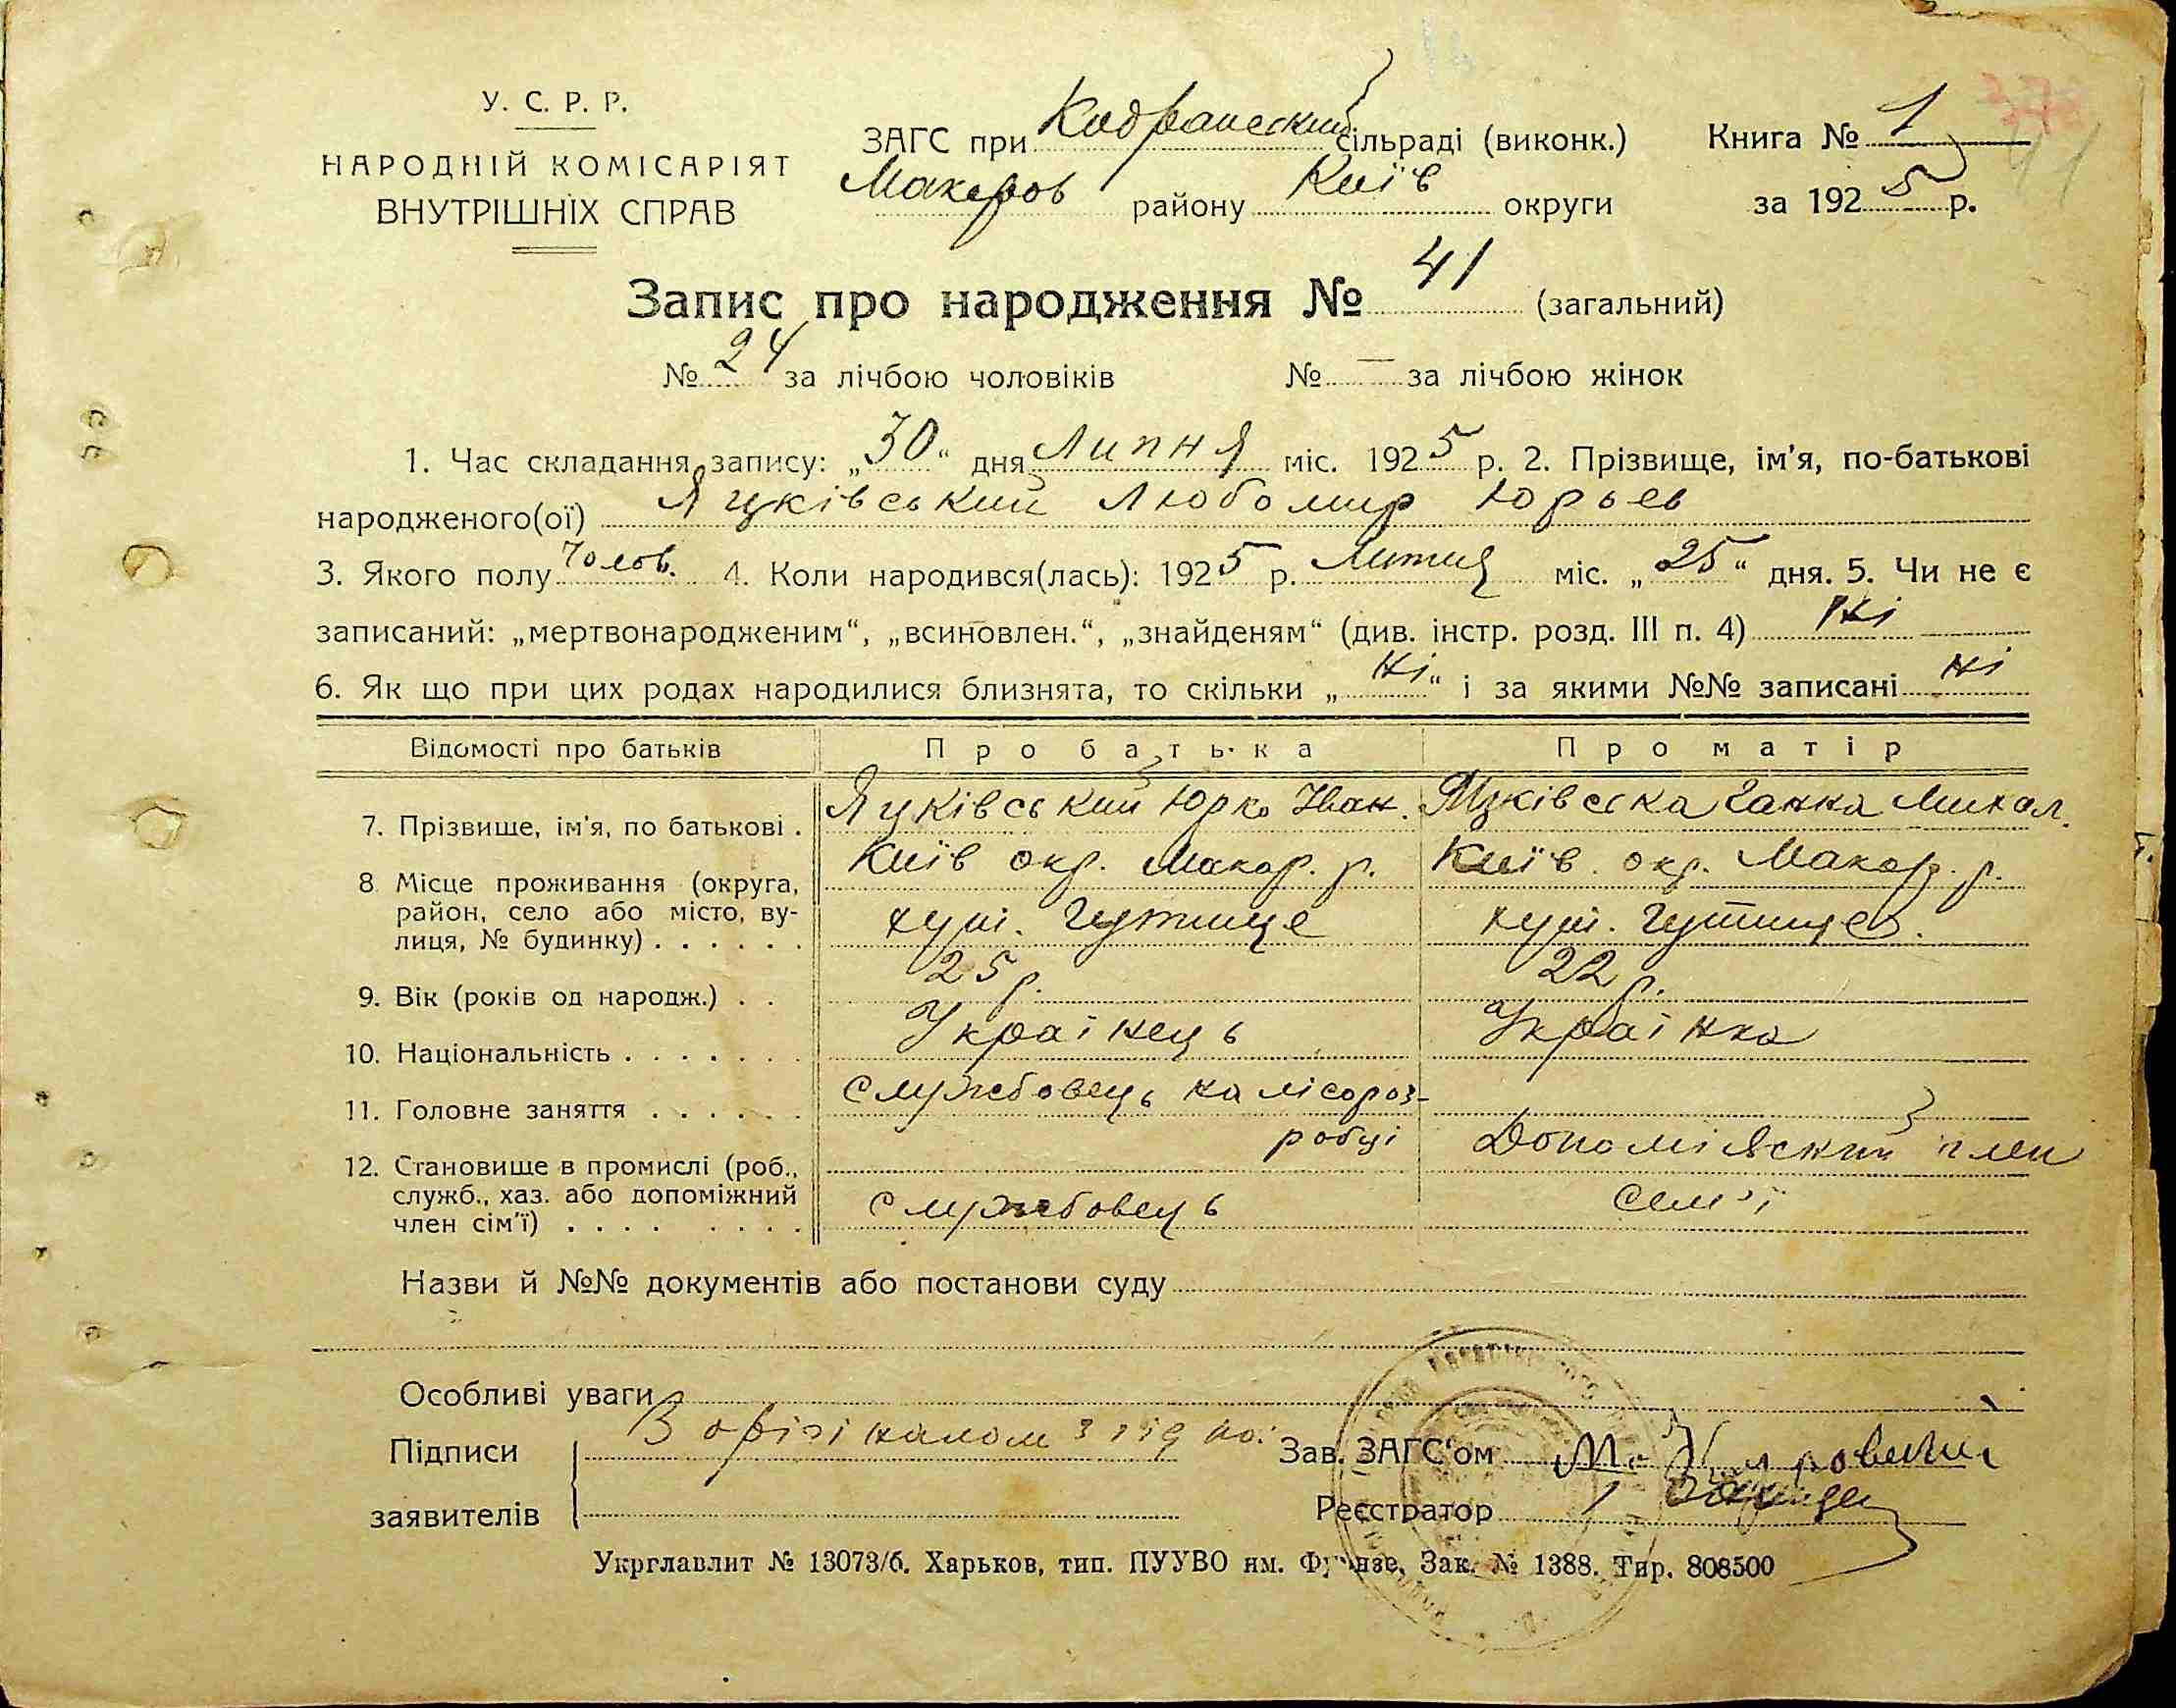 У. С. Р. Р.
НАРОДНІЙ КОМІСАРІЯТ
ВНУТРІШНІХ СПРАВ
ЗАГС при Кодранский сільраді (виконк.)
Макаров району Київ округи
Книга № 1
за 1925 р.
Запис про народження № 41 (загальний)
№ 24 за лічбою чоловіків № — за лічбою жінок
1. Час складання запису: „30“ дня Липня міс. 1925 р. 2. Прізвище, ім'я, по-батькові
народженого(ої) Яцківський Любомир Юрьев
3. Якого полу Чолов. 4. Коли народився(лась): 1925 р. міс. „25“ дня. 5. Чи не є
записаний: „мертвонародженим“, „всиновлен.“, „знайденям“ (див. інстр. розд. III п. 4) Ні
6. Як що при цих родах народилися близнята, то скільки „Ні“ і за якими №№ записані Ні
Відомості про батьків Про батька Про матір
7. Прізвище, ім'я, по батькові . Яцківський Юрко Іван. Яцківська Ганна Михал.
8 Місце проживання (округа, Київ окр. Макар. р. Київ. окр. Макар. р.
район, село або місто, ву-
лиця, № будинку) . . . . . . хут. Гутище хут.
9. Вік (років од народж.) . . 25 р. 22 р.
10. Національність . . . . . . . Українець Українка
11. Головне заняття . . . . . . Службовець на лісороз-
робці
12. Становище в промислі (роб., член
служб., хаз. або допоміжний
член сім'ї) . . . . . . . . Службовець сем'ї
Назви й №№ документів або постанови суду
Особливі уваги
Підписи З орігіналом згідно: Зав. ЗАГС'ом М.
заявителів Реєстратор
Укрглавлит № 13073/б. Харьков, тип. ПУУВО им. Фрунзе, Зак. № 1388. Тир. 808500